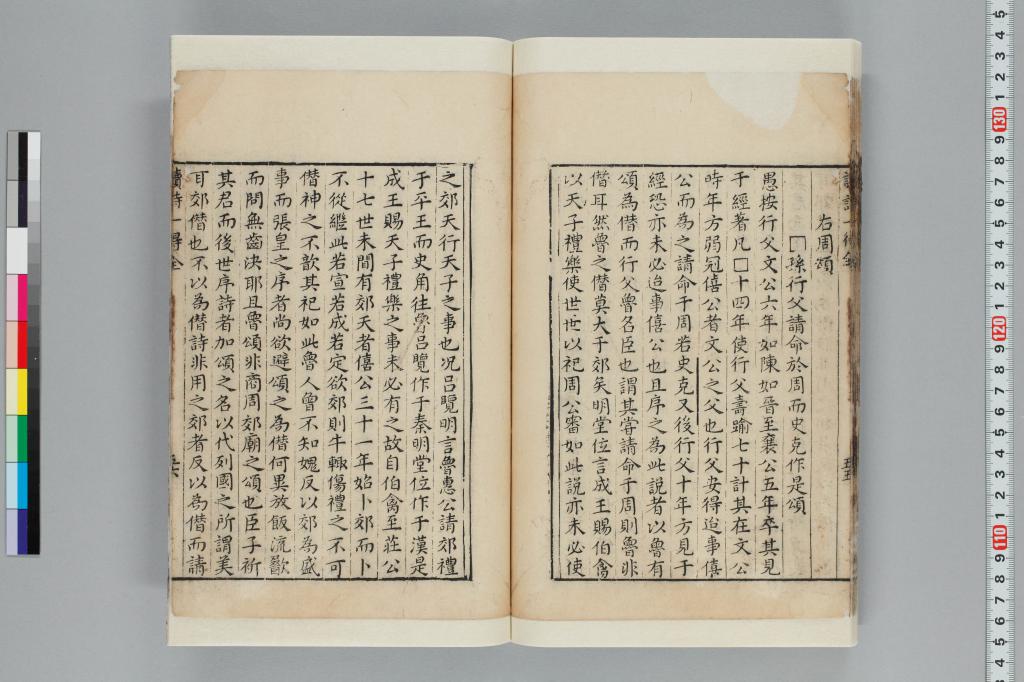 讀詩一得全
五五
右周頌
□孫行父請命於周而史克作是頌
愚按行父文公六年如陳如晉至襄公五年卒其見
于經者凡□十四年使行父壽踰七十計其在文公
時年方弱冠僖公者文公之父也行父安得迨事僖
公而為之請命于周若史克又後行父十年方見于
經恐亦未必迨事僖公也且序之為此說者以魯有
頌為僭而行父魯名臣也謂其嘗請命于周則魯非
僭耳然魯之僭莫大于郊矣明堂位言成王賜伯禽
以天子禮樂使世世以祀周公審如此說亦未必使
之郊天行天子之事也况呂覽明言魯惠公請郊禮
于平王而史角往魯呂覽作于秦明堂位作于漢是
成王賜天子禮樂之事未必有之故自伯禽至莊公
十七世未間有郊天者僖公三十一年始卜郊而卜
不從繼此若宣若成若定欲郊則牛輒傷禮之不可
僭神之不歆其祀如此魯人曾不知媿反以郊為盛
事而張皇之序者尚欲避頌之為僭何異放飯流歠
而問無齒决耶且魯頌非商周郊廟之頌也臣子祈
其君而後世序詩者加頌之名以代列國之所謂美
耳郊僭也不以為僭詩非用之郊者反以為僭而請
讀詩一得全